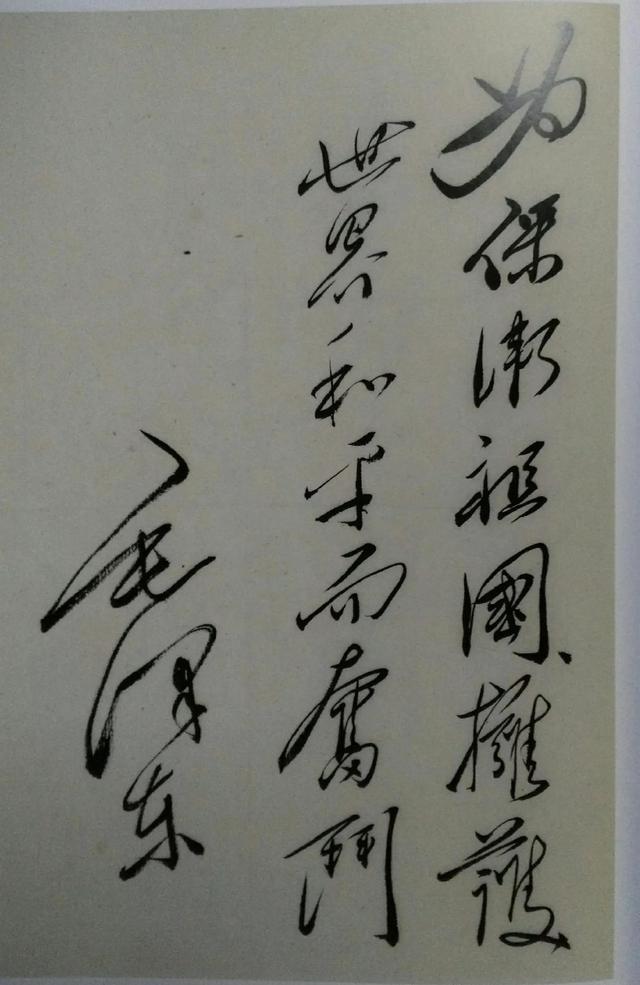 为保衛祖國、擁護
世界和平而奮鬥
毛泽东